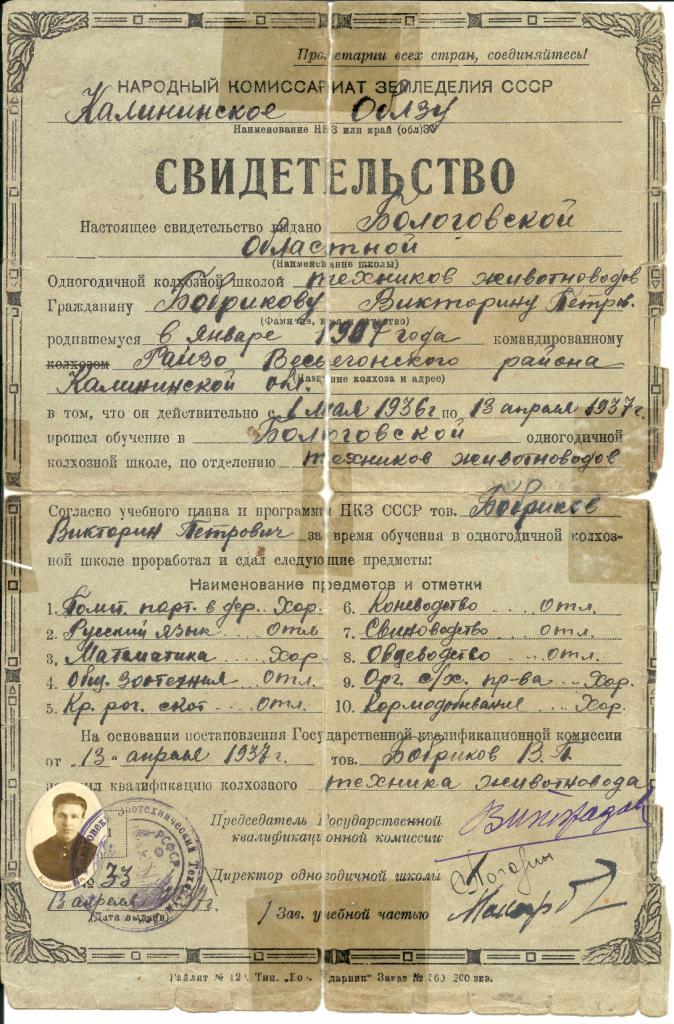 Пролетарии всех стран, соединяйтесь!
НАРОДНЫЙ КОМИССАРИАТ ЗЕМЛЕДЕЛИЯ СССР
Калининское ОблЗУ
Наименование НКЗ или край (обл)ЗУ
СВИДЕТЕЛЬСТВО
Настоящее свидетельство выдано Бологовской
областной
(Наименование школы)
Одногодичной колхозной школой техников животноводов
Гражданину Бобрикову Викторину Петров.
(Фамилия, имя и отчество)
родившемуся в январе 1907 года командированному
колхозом Райзо Весьегонского района
Калининской обл. (Название колхоза и адрес)
в том, что он действительно с 1 мая 1936г по 13 апреля 1937г.
прошел обучение в Бологовской одногодичной
колхозной школе, по отделению техников животноводов
Согласно учебного плана и программ НКЗ СССР тов. Бобриков
Викторин Петрович за время обучения в одногодичной колхоз-
ной школе проработал и сдал следующие предметы:
Наименование предметов и отметки
1. Полит. парт. в дер. Хор. 6. Коневодство ... отл.
2. Русский язык ... Отл 7. Свиноводство ... отл.
3. Математика ... Хор. 8. Овцеводство ... отл.
4. Общ. Зоотехния Отл. 9. Орг. с/х. пр-ва ... Хор.
5. Кр. рог. скот ... Отл. 10. Кормодобывание ... Хор.
На основании постановления Государственной квалификационной комиссии
от "13" апреля 1937г. тов. Бобриков В. П.
квалификацию колхозного техника животновода
Председатель Государственной
квалификационной комиссии
Директор одногодичной школы
Зав. учебной частью
Зоотехнический Техникум
РСФСР
33
13 апреля 1937г.
(Дата выдачи)
Райлит № 12 Тип. Заказ № 560 200 экз.